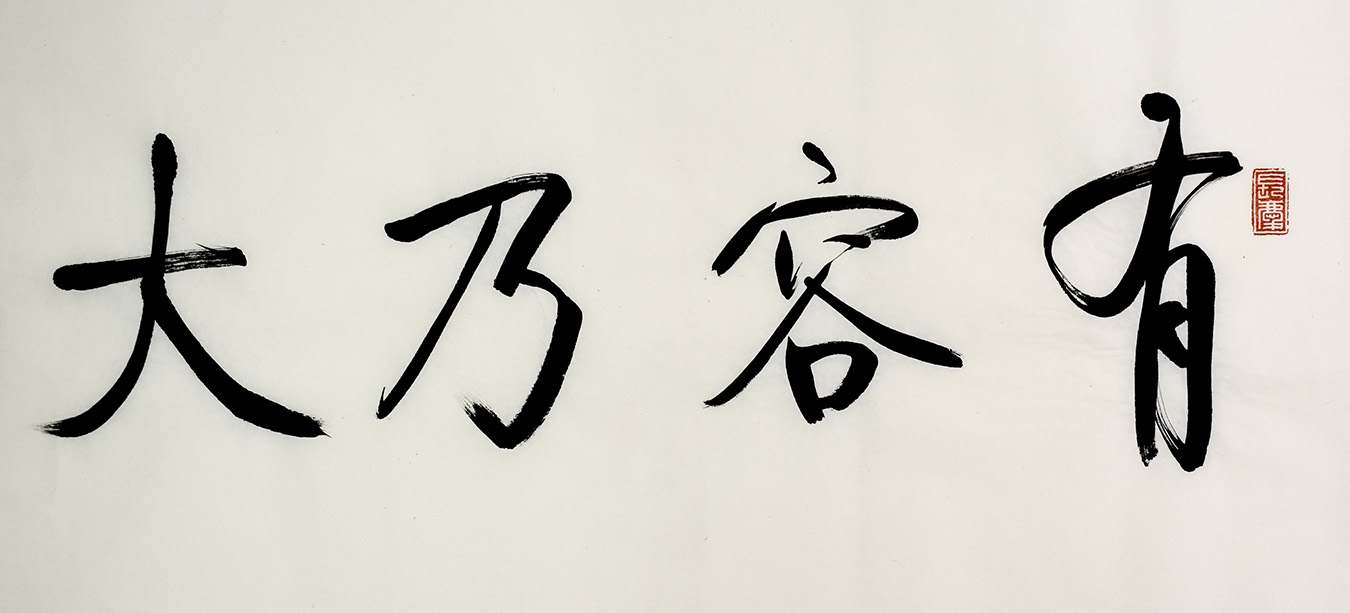 有容乃大